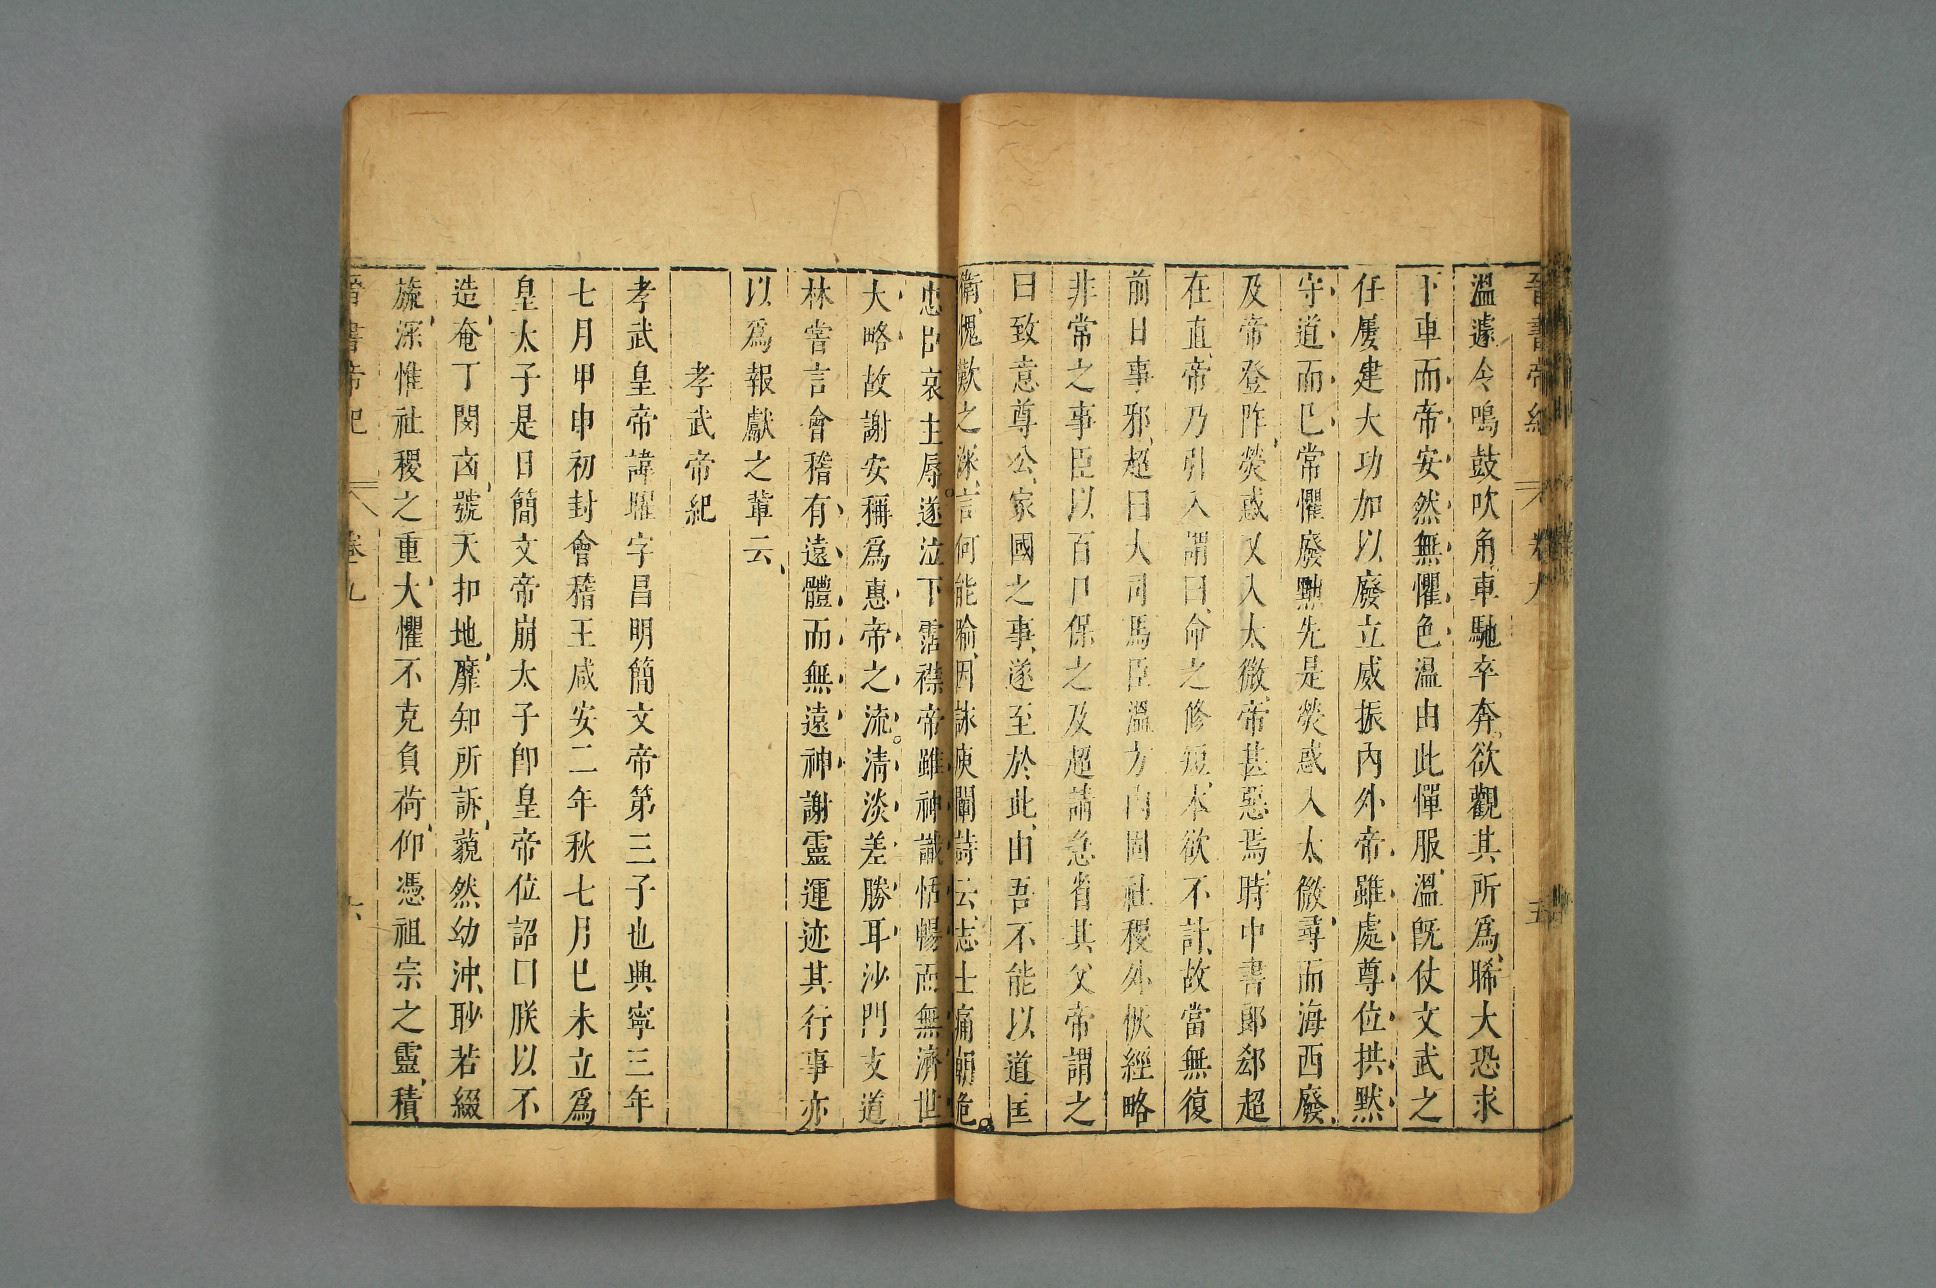 晉書帝紀 卷九 五
溫遽令鳴鼓吹角車馳卒奔欲觀其所爲晞大恐求
下車而帝安然無懼色溫由此憚服溫既仗文武之
任屢建大功加以廢立威振內外帝雖處尊位拱默
守道而已常懼廢黜先是熒惑入太微尋而海西廢
及帝登阼熒惑又入太微帝甚惡焉時中書郎郄超
在直帝乃引入謂曰命之修短本欲不計故當無復
前日事邪超曰大司馬臣溫方內固社稷外恢經略
非常之事臣以百口保之及超請急省其父帝謂之
曰致意尊公家國之事遂至於此由吾不能以道匡
衛愧歎之深言何能喻因詠庾闡詩云志士痛朝危
忠臣哀主辱遂泣下霑襟帝雖神識恬暢而無濟世
大略故謝安稱爲惠帝之流清淡差勝耳沙門支道
林嘗言會稽有遠體而無遠神謝靈運迹其行事亦
以爲報獻之輩云
孝武帝紀
孝武皇帝諱曜字昌明簡文帝第三子也興寧三年
七月甲申初封會稽王咸安二年秋七月已未立爲
皇太子是日簡文帝崩太子卽皇帝位詔曰朕以不
造奄丁閔凶號天扣地靡知所訴藐然幼沖眇若綴
旒深惟社稷之重大懼不克負荷仰憑祖宗之靈積
晉書帝紀 卷九 六